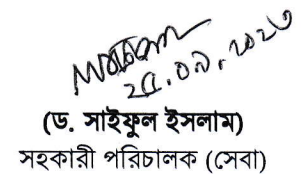 ২৫.০৯.২০২৩
(ড. সাইফুল ইসলাম)
সহকারী পরিচালক (সেবা)